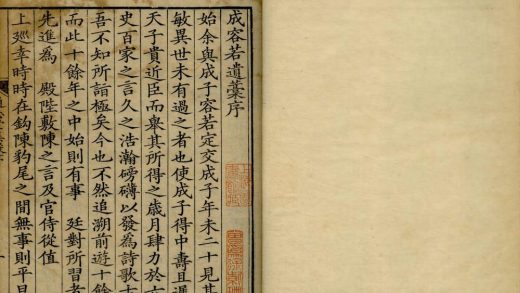 成容若遺藁序
始余與成子容若定交成子年未二十見其
敏異世未有過之者也使成子得中壽且遇
天子貴近臣而舉其所得之歲月肆力於六
史百家之言久之浩瀚磅礴以發為詩歌古
吾不知所詣極矣今也不然追溯前遊十餘
而此十餘年之中始則有事 廷對所習者
先進為 殿陛敷陳之言及官侍從值
上廵幸時時在鈎陳豹尾之間無事則平旦